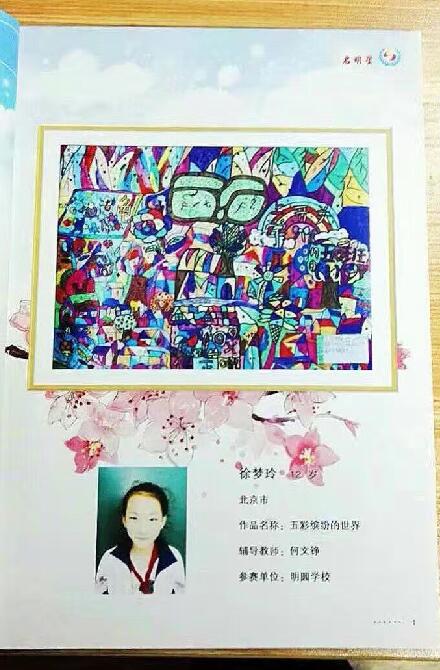 启明星
徐梦玲 12 岁
北京市
作品名称：五彩缤纷的世界
辅导教师：何文铮
参赛单位：明圆学校
1